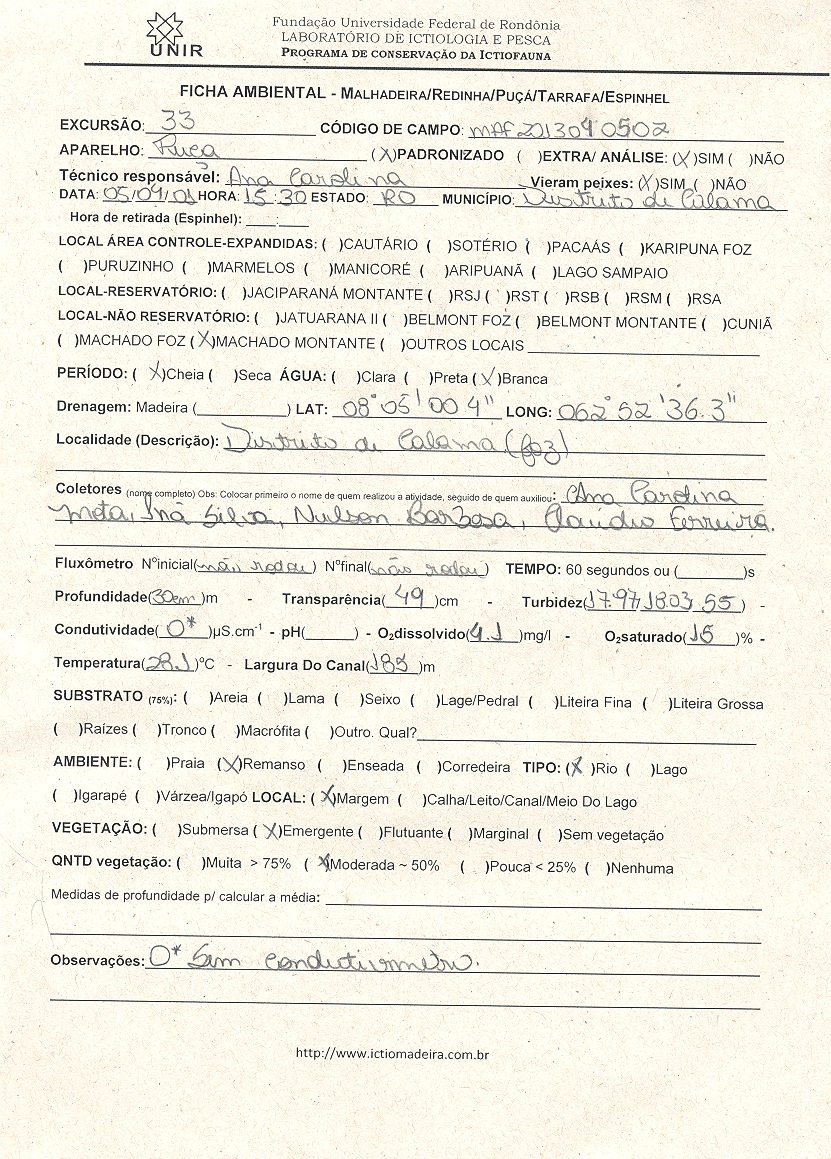 UNIR
Fundação Universidade Federal de Rondônia
LABORATÓRIO DE ICTIOLOGIA E PESCA
PROGRAMA DE CONSERVAÇÃO DA ICTIOFAUNA
FICHA AMBIENTAL - MALHADEIRA/REDINHA/PUÇÁ/TARRAFA/ESPINHEL
EXCURSÃO: 33 CÓDIGO DE CAMPO: MAF2013040502
APARELHO: Puça (X)PADRONIZADO ( )EXTRA/ ANÁLISE: (X)SIM ( )NÃO
Técnico responsável: Ana Carolina Vieram peixes: (X)SIM ( )NÃO
DATA: 05/04/ HORA: 15:30 ESTADO: RO MUNICÍPIO: Distrito de Calama
Hora de retirada (Espinhel): ___:___
LOCAL ÁREA CONTROLE-EXPANDIDAS: ( )CAUTÁRIO ( )SOTÉRIO ( )PACAÁS ( )KARIPUNA FOZ
( )PURUZINHO ( )MARMELOS ( )MANICORÉ ( )ARIPUANÃ ( )LAGO SAMPAIO
LOCAL-RESERVATÓRIO: ( )JACIPARANÁ MONTANTE ( )RSJ ( )RST ( )RSB ( )RSM ( )RSA
LOCAL-NÃO RESERVATÓRIO: ( )JATUARANA II ( )BELMONT FOZ ( )BELMONT MONTANTE ( )CUNIÃ
( )MACHADO FOZ (X)MACHADO MONTANTE ( )OUTROS LOCAIS
PERÍODO: (X)Cheia ( )Seca ÁGUA: ( )Clara ( )Preta (X)Branca
Drenagem: Madeira ( ) LAT: 08°05'00 4" LONG: 062°52'36.3"
Localidade (Descrição): Distrito de Calama (foz)
Coletores (nome completo) Obs: Colocar primeiro o nome de quem realizou a atividade, seguido de quem auxiliou: Ana Carolina
Mota, Silva, Nilson Barbosa, Claudio Ferreira.
Fluxômetro Nºinicial(não rodou) Nºfinal(não rodou) TEMPO: 60 segundos ou ( )s
Profundidade(30cm)m - Transparência(49)cm - Turbidez(17.97/18.03 ) -
Condutividade(0*)µS.cm⁻¹ - pH( ) - O₂dissolvido(4.1)mg/l - O₂saturado(15)% -
Temperatura(28.1)ºC - Largura Do Canal(185)m
SUBSTRATO (75%): ( )Areia ( )Lama ( )Seixo ( )Lage/Pedral ( )Liteira Fina ( )Liteira Grossa
( )Raízes ( )Tronco ( )Macrófita ( )Outro. Qual?
AMBIENTE: ( )Praia (X)Remanso ( )Enseada ( )Corredeira TIPO: (X)Rio ( )Lago
( )Igarapé ( )Várzea/Igapó LOCAL: (X)Margem ( )Calha/Leito/Canal/Meio Do Lago
VEGETAÇÃO: ( )Submersa (X)Emergente ( )Flutuante ( )Marginal ( )Sem vegetação
QNTD vegetação: ( )Muita > 75% (X)Moderada ~ 50% ( )Pouca < 25% ( )Nenhuma
Medidas de profundidade p/ calcular a média:
Observações: 0* Sem condutivimetro.
http://www.ictiomadeira.com.br